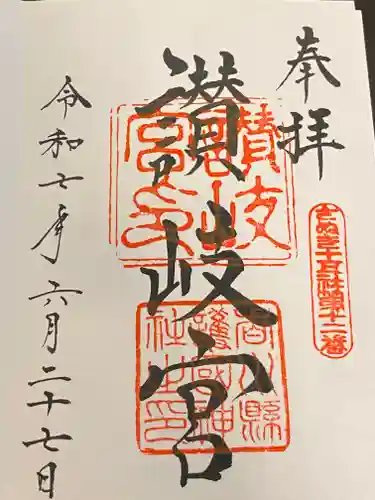 奉拝
さぬき十五社第十二番
讃岐宮
讃岐宮之印
香川縣護國神社之印
令和七年六月二十七日